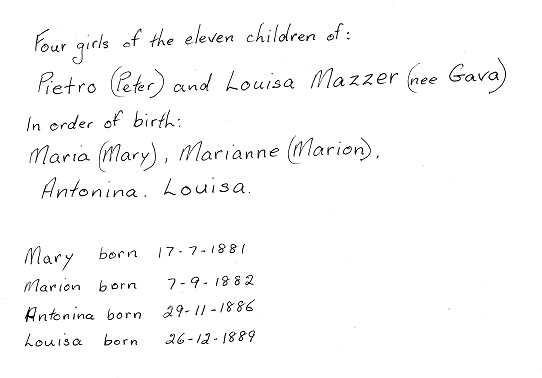 Four girls of the eleven children of:
Pietro (Peter) and Louisa Mazzer (nee Gava)
In order of birth:
Maria (Mary), Marianne (Marion),
Antonina. Louisa.
Mary born 17-7-1881
Marion born 7-9-1882
Antonina born 29-11-1886
Louisa born 26-12-1889